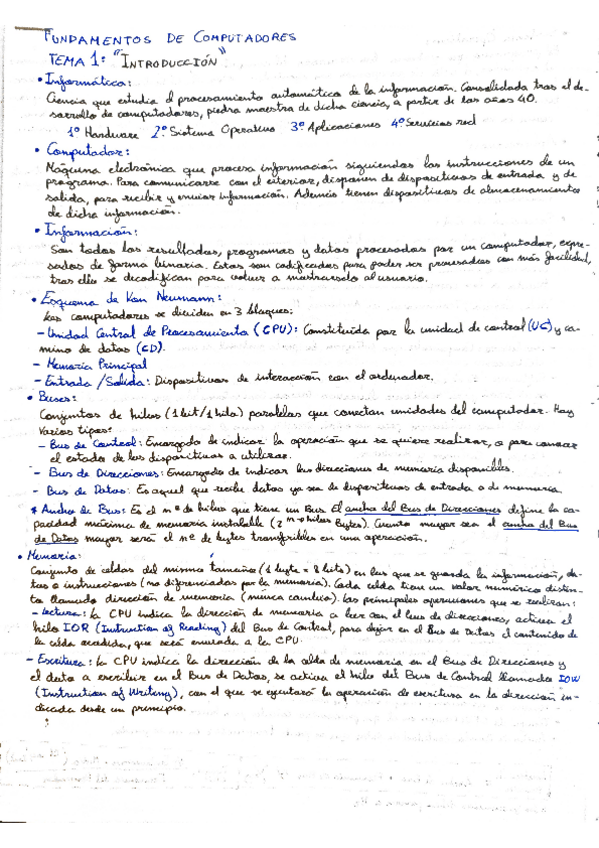 FUNDAMENTOS DE COMPUTADORES
TEMA 1: "INTRODUCCIÓN"
• Informática:
Ciencia que estudia el procesamiento automático de la información. Consolidada tras el de-
sarrollo de computadores, piedra maestra de dicha ciencia, a partir de los años 40.
1º Hardware 2º Sistema Operativo 3º Aplicaciones 4º Servicios red
• Computador:
Máquina electrónica que procesa información siguiendo las instrucciones de un
programa. Para comunicarse con el exterior, disponen de dispositivos de entrada y de
salida, para recibir y enviar información. Además tienen dispositivos de almacenamiento
de dicha información.
• Información:
Son todos los resultados, programas y datos procesados por un computador, expre-
sados de forma binaria. Estos son codificados para poder ser procesados con más facilidad,
tras ello se decodifican para volver a mostrárselo al usuario.
• Esquema de Von Neumann:
Los computadores se dividen en 3 bloques:
- Unidad Central de Procesamiento (CPU): Constituida por la unidad de control (UC) y ca-
mino de datos (CD).
- Memoria Principal
- Entrada/Salida: Dispositivos de interacción con el ordenador.
• Buses:
Conjuntos de hilos (1 bit/1 hilo) paralelos que conectan unidades del computador. Hay
varios tipos:
- Bus de Control: Encargado de indicar la operación que se quiere realizar, o para conocer
el estado de los dispositivos a utilizar.
- Bus de Direcciones: Encargado de indicar las direcciones de memoria disponibles.
- Bus de Datos: Es aquel que recibe datos ya sea de dispositivos de entrada o de memoria.
* Ancho de Bus: Es el nº de hilos que tiene un Bus. El ancho del Bus de Direcciones define la ca-
pacidad máxima de memoria instalable (2^nº hilos Bytes). Cuanto mayor sea el ancho del Bus
de Datos mayor será el nº de bytes transferibles en una operación.
• Memoria:
Conjunto de celdas del mismo tamaño (1 byte = 8 bits) en las que se guarda la información, da-
tos o instrucciones (no diferenciados por la memoria). Cada celda tiene un valor numérico distin-
to llamado dirección de memoria (nunca cambia). Las principales operaciones que se realizan:
- Lectura: La CPU indica la dirección de memoria a leer con el bus de direcciones, activa el
hilo IOR (Instruction of Reading) del Bus de Control, para dejar en el Bus de Datos el contenido de
la celda accedida, que será enviada a la CPU.
- Escritura: La CPU indica la dirección de la celda de memoria en el Bus de Direcciones y
el dato a escribir en el Bus de Datos, se activa el hilo del Bus de Control llamado IOW
(Instruction of Writing), con el que se ejecutará la operación de escritura en la dirección in-
dicada desde un principio.